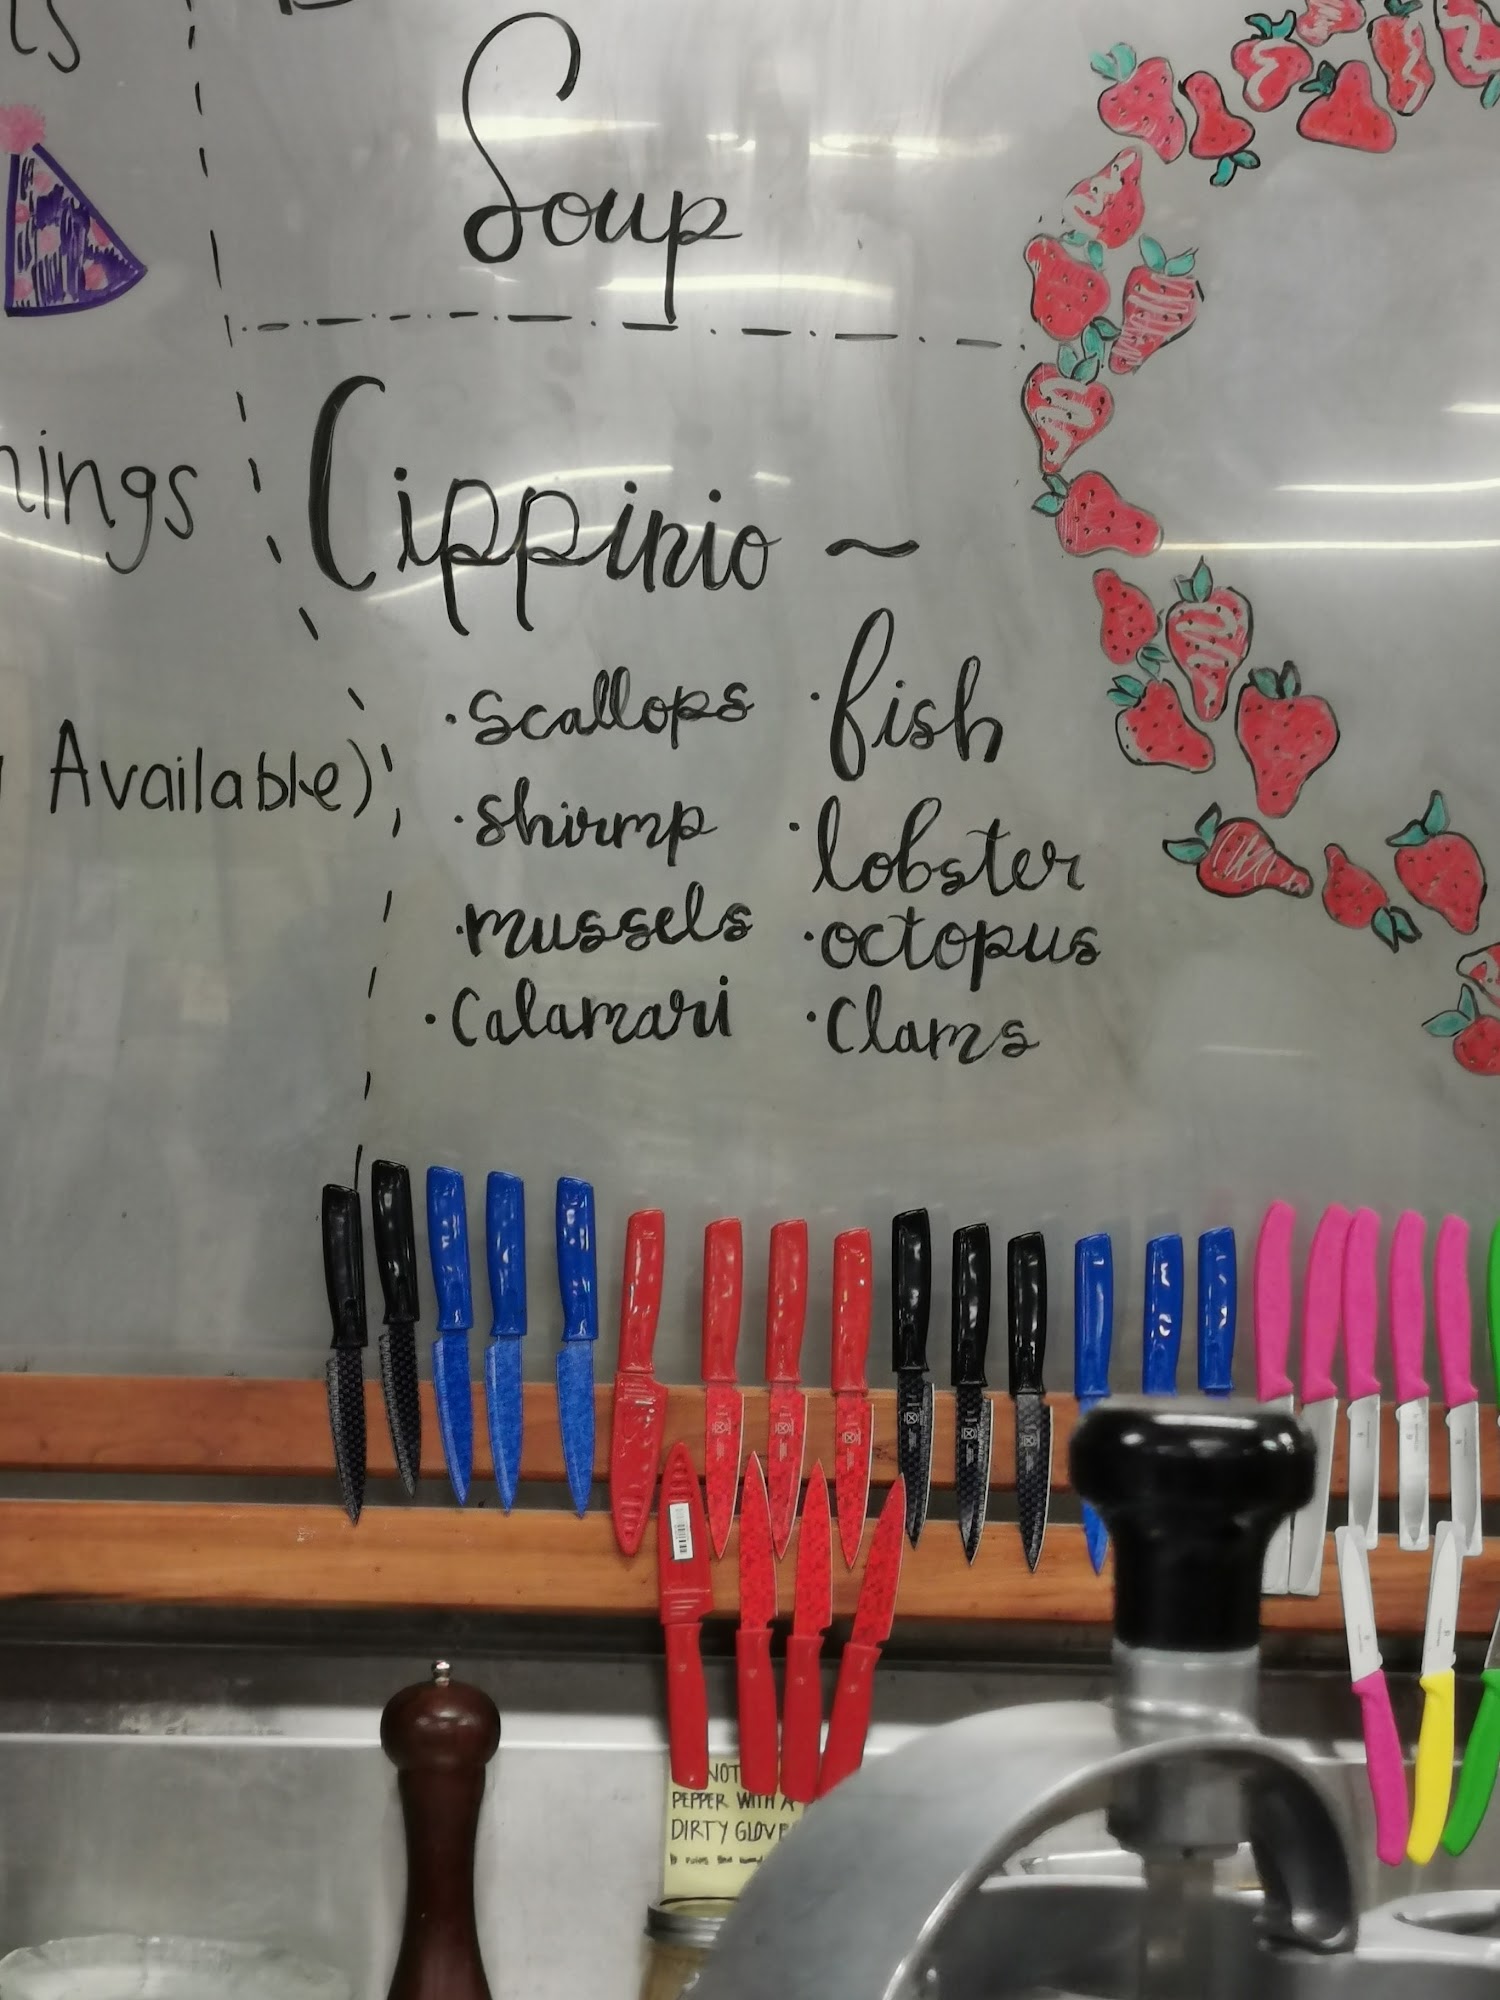 Soup
Cippinio ~
· scallops
· fish
· shirmp
· lobster
· mussels
· octopus
· Calamari
· Clams
nings
Available)
NOT
PEPPER WITH A
DIRTY GLOVE